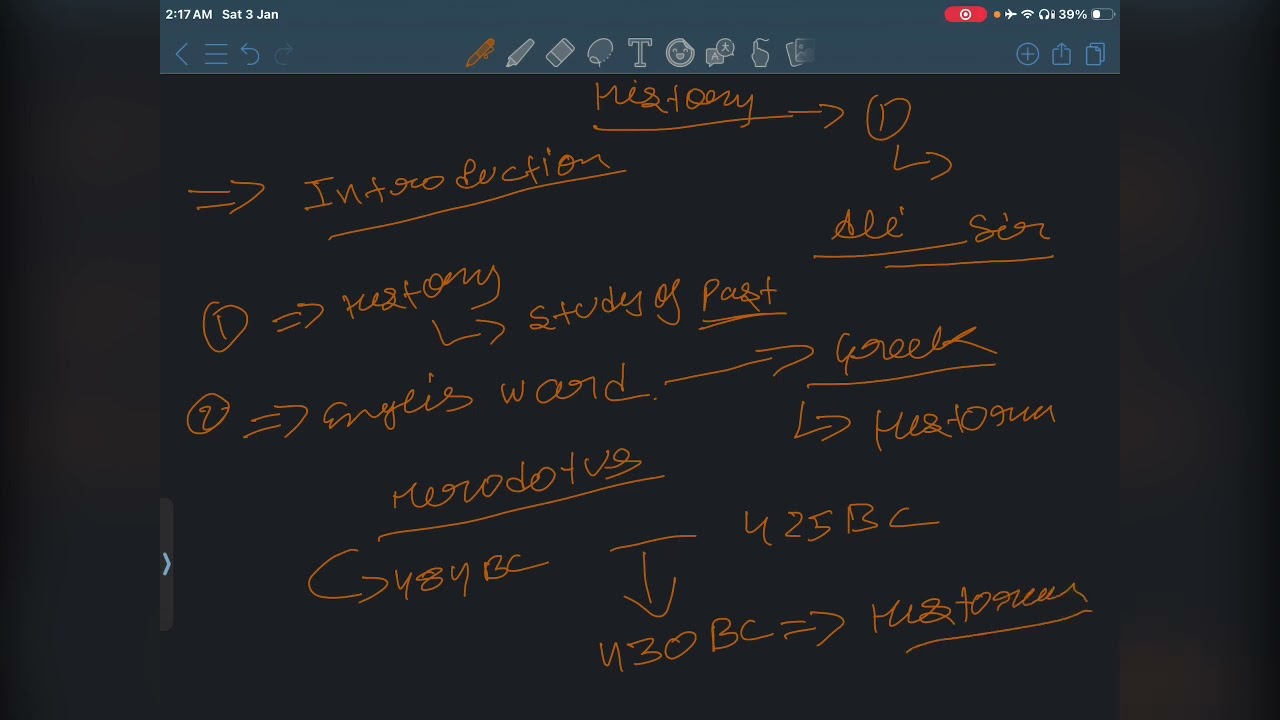 2:17AM Sat 3 Jan 39%
History → ①
⇒ Introduction
Ali Sir
① ⇒ History
↳ study of Past
② ⇒ Englis word. → Greek
↳ Historia
Herodotus
484 BC — 425 BC
430 BC ⇒